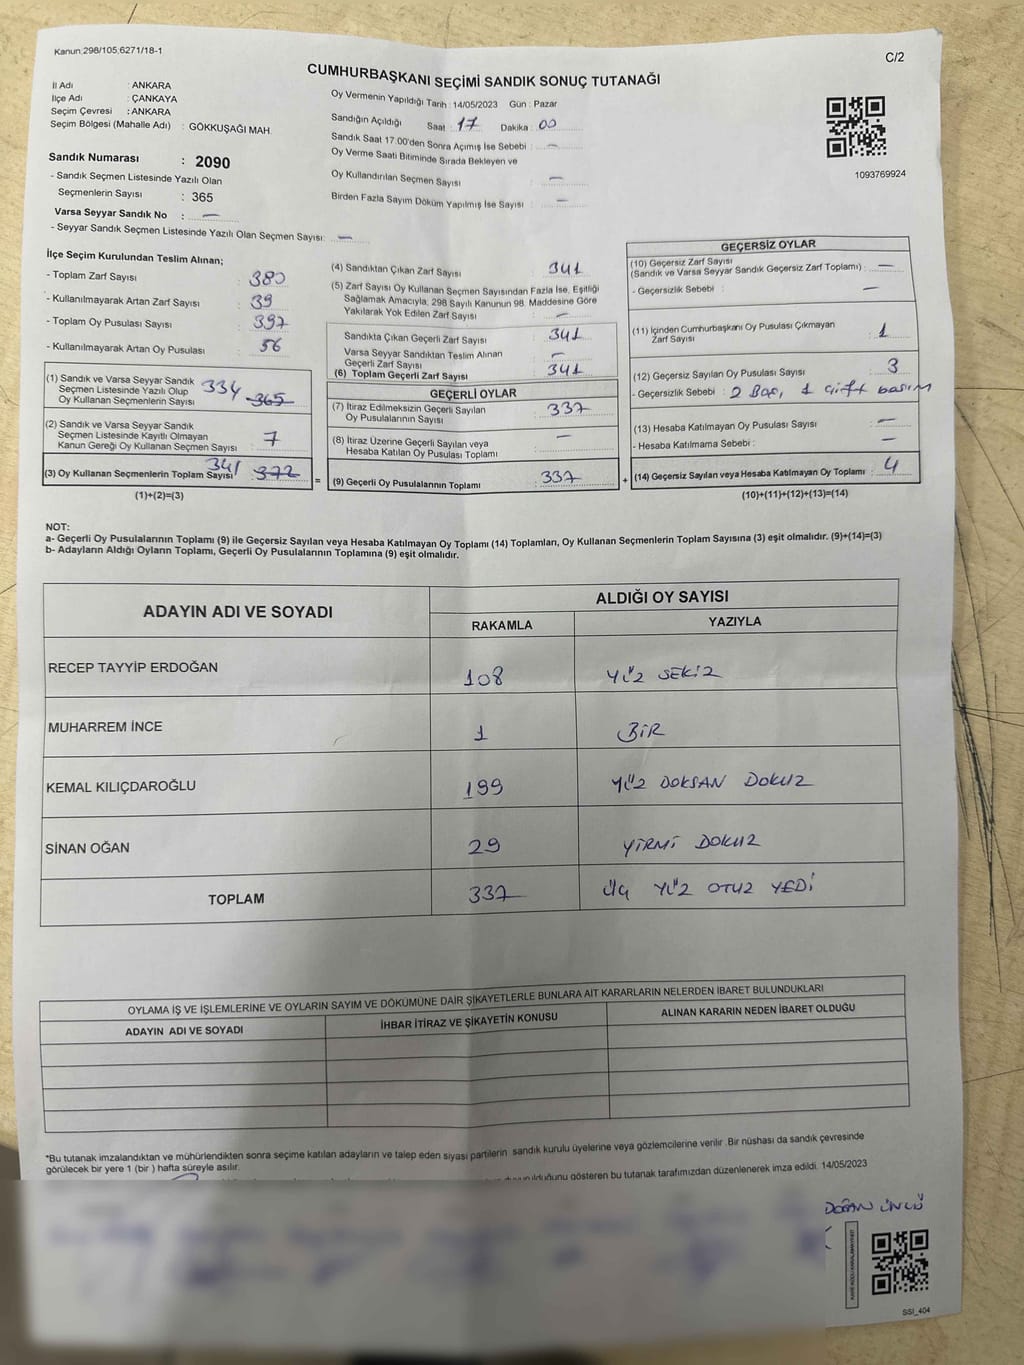 Kanun:298/105,6271/18-1
C/2
CUMHURBAŞKANI SEÇİMİ SANDIK SONUÇ TUTANAĞI
İl Adı : ANKARA
İlçe Adı : ÇANKAYA
Seçim Çevresi : ANKARA
Seçim Bölgesi (Mahalle Adı) : GÖKKUŞAĞI MAH.
Sandık Numarası : 2090
- Sandık Seçmen Listesinde Yazılı Olan
Seçmenlerin Sayısı : 365
Varsa Seyyar Sandık No : —
- Seyyar Sandık Seçmen Listesinde Yazılı Olan Seçmen Sayısı: —
Oy Vermenin Yapıldığı Tarih : 14/05/2023 Gün : Pazar
Sandığın Açıldığı Saat : 17 Dakika : 00
Sandık Saat 17:00'den Sonra Açımış İse Sebebi : —
Oy Verme Saati Bitiminde Sırada Bekleyen ve
Oy Kullandırılan Seçmen Sayısı : —
Birden Fazla Sayım Döküm Yapılmış İse Sayısı : —
1093769924
İlçe Seçim Kurulundan Teslim Alınan;
- Toplam Zarf Sayısı : 380
- Kullanılmayarak Artan Zarf Sayısı : 39
- Toplam Oy Pusulası Sayısı : 397
- Kullanılmayarak Artan Oy Pusulası : 56
(1) Sandık ve Varsa Seyyar Sandık
Seçmen Listesinde Yazılı Olup
Oy Kullanan Seçmenlerin Sayısı : 334 365
(2) Sandık ve Varsa Seyyar Sandık
Seçmen Listesinde Kayıtlı Olmayan
Kanun Gereği Oy Kullanan Seçmen Sayısı : 7
(3) Oy Kullanan Seçmenlerin Toplam Sayısı : 341 372
(1)+(2)=(3)
(4) Sandıktan Çıkan Zarf Sayısı : 341
(5) Zarf Sayısı Oy Kullanan Seçmen Sayısından Fazla İse, Eşitliği
Sağlamak Amacıyla, 298 Sayılı Kanunun 98. Maddesine Göre
Yakılarak Yok Edilen Zarf Sayısı : —
Sandıkta Çıkan Geçerli Zarf Sayısı : 341
Varsa Seyyar Sandıktan Teslim Alınan
Geçerli Zarf Sayısı : —
(6) Toplam Geçerli Zarf Sayısı : 341
GEÇERLİ OYLAR
(7) İtiraz Edilmeksizin Geçerli Sayılan
Oy Pusulalarının Sayısı : 337
(8) İtiraz Üzerine Geçerli Sayılan veya
Hesaba Katılan Oy Pusulası Toplamı : —
= (9) Geçerli Oy Pusulalarının Toplamı : 337
GEÇERSİZ OYLAR
(10) Geçersiz Zarf Sayısı
(Sandık ve Varsa Seyyar Sandık Geçersiz Zarf Toplamı) : —
- Geçersizlik Sebebi : —
(11) İçinden Cumhurbaşkanı Oy Pusulası Çıkmayan
Zarf Sayısı : 1
(12) Geçersiz Sayılan Oy Pusulası Sayısı : 3
- Geçersizlik Sebebi : 2 Boş, 1 çift basım
(13) Hesaba Katılmayan Oy Pusulası Sayısı : —
- Hesaba Katılmama Sebebi : —
+ (14) Geçersiz Sayılan veya Hesaba Katılmayan Oy Toplamı : 4
(10)+(11)+(12)+(13)=(14)
NOT:
a- Geçerli Oy Pusulalarının Toplamı (9) ile Geçersiz Sayılan veya Hesaba Katılmayan Oy Toplamı (14) Toplamları, Oy Kullanan Seçmenlerin Toplam Sayısına (3) eşit olmalıdır. (9)+(14)=(3)
b- Adayların Aldığı Oyların Toplamı, Geçerli Oy Pusulalarının Toplamına (9) eşit olmalıdır.
ADAYIN ADI VE SOYADI
ALDIĞI OY SAYISI
RAKAMLA YAZIYLA
RECEP TAYYİP ERDOĞAN 108 YÜZ SEKİZ
MUHARREM İNCE 1 BİR
KEMAL KILIÇDAROĞLU 199 YÜZ DOKSAN DOKUZ
SİNAN OĞAN 29 YİRMİ DOKUZ
TOPLAM 337 ÜÇ YÜZ OTUZ YEDİ
OYLAMA İŞ VE İŞLEMLERİNE VE OYLARIN SAYIM VE DÖKÜMÜNE DAİR ŞİKAYETLERLE BUNLARA AİT KARARLARIN NELERDEN İBARET BULUNDUKLARI
ADAYIN ADI VE SOYADI İHBAR İTİRAZ VE ŞİKAYETİN KONUSU ALINAN KARARIN NEDEN İBARET OLDUĞU
*Bu tutanak imzalandıktan ve mühürlendikten sonra seçime katılan adayların ve talep eden siyasi partilerin sandık kurulu üyelerine veya gözlemcilerine verilir .Bir nüshası da sandık çevresinde
görülecek bir yere 1 (bir ) hafta süreyle asılır.
gösteren bu tutanak tarafımızdan düzenlenerek imza edildi. 14/05/2023
DOĞAN ÜNLÜ
SSI_404